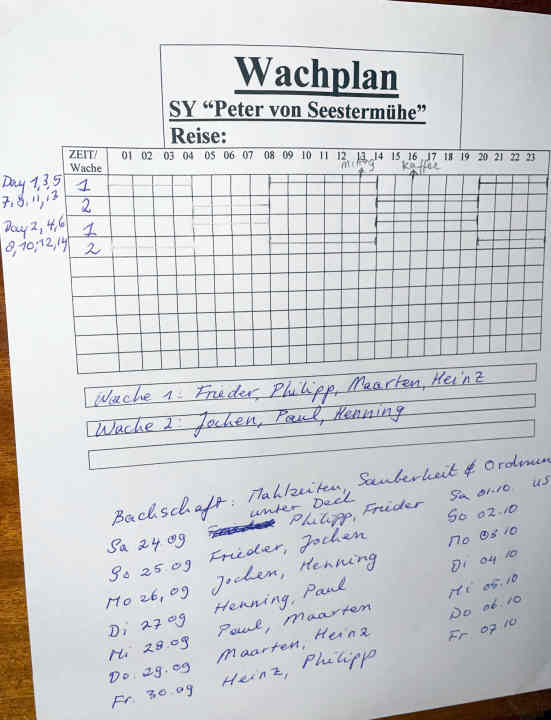 Wachplan
SY “Peter von Seestermühe”
Reise:
ZEIT/ Wache 01 02 03 04 05 06 07 08 09 10 11 12 13 14 15 16 17 18 19 20 21 22 23
mittag kaffee
Day 1,3,5 1
7,9,11,13 2
Day 2,4,6 1
8,10,12,14 2
Wache 1: Frieder, Philipp, Maarten, Heinz
Wache 2: Jochen, Paul, Henning
Backschaft: Mahlzeiten, Sauberheit & Ordnun
unter Deck
Sa 24.09 Philipp, Frieder Sa 01.10. us
So 25.09 Frieder, Jochen So 02.10
Mo 26,09 Jochen, Henning Mo 03.10
Di 27 09 Henning, Paul Di 04 10
Mi 28.09 Paul, Maarten Mi 05.10
Do. 29.09 Maarten, Heinz Do 06.10
Fr. 30.09 Heinz, Philipp Fr 07 10